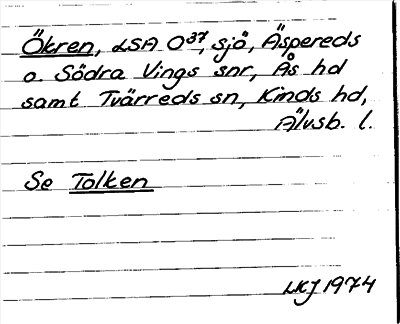 Ökren, LSA O37, sjö, Äspereds
o. Södra Vings snr, Ås hd
samt Tvärreds sn, Kinds hd,
Älvsb. l.
Se Tolken
LKJ 1974